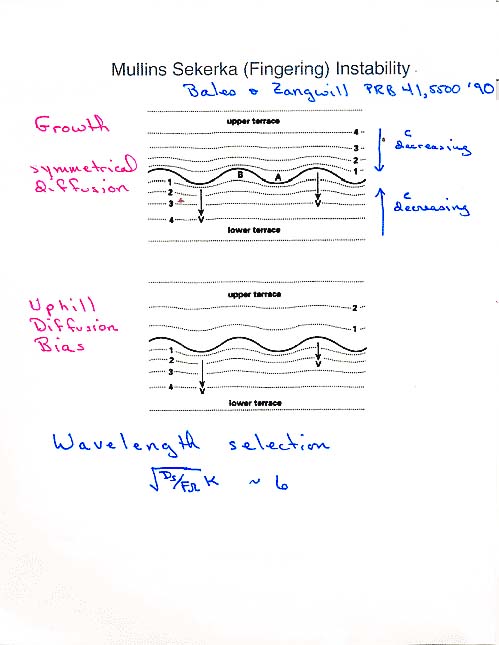 Mullins Sekerka (Fingering) Instability
Bales & Zangwill PRB 41, 5500 '90
Growth
symmetrical
diffusion
upper terrace
4
3
2
1
B A
1
2
3
4
V V
lower terrace
c
decreasing
c
decreasing
Uphill
Diffusion
Bias
upper terrace
2
1
1
2
3
4
V V
lower terrace
Wavelength selection
√Ds/FΩ K ~ 6